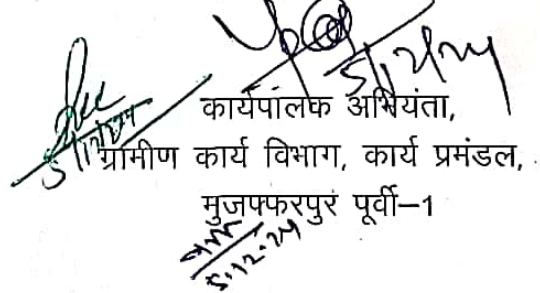 कार्यपालक अभियंता,
ग्रामीण कार्य विभाग, कार्य प्रमंडल,
मुजफ्फरपुर पूर्वी–1
5.12.24